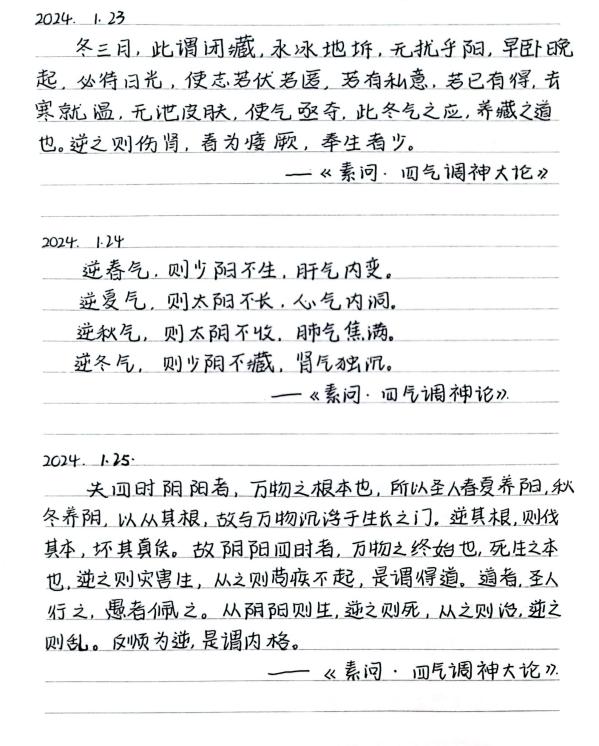 2024. 1.23
冬三月，此谓闭藏，水冰地坼，无扰乎阳，早卧晚
起，必待日光，使志若伏若匿，若有私意，若已有得，去
寒就温，无泄皮肤，使气亟夺，此冬气之应，养藏之道
也。逆之则伤肾，春为痿厥，奉生者少。
——《素问·四气调神大论》
2024. 1.24
逆春气，则少阳不生，肝气内变。
逆夏气，则太阳不长，心气内洞。
逆秋气，则太阴不收，肺气焦满。
逆冬气，则少阴不藏，肾气独沉。
——《素问·四气调神论》.
2024. 1.25.
夫四时阴阳者，万物之根本也，所以圣人春夏养阳，秋
冬养阴，以从其根，故与万物沉浮于生长之门。逆其根，则伐
其本，坏其真矣。故阴阳四时者，万物之终始也，死生之本
也，逆之则灾害生，从之则苛疾不起，是谓得道。道者，圣人
行之，愚者佩之。从阴阳则生，逆之则死，从之则治，逆之
则乱。反顺为逆，是谓内格。
——《素问·四气调神大论》.